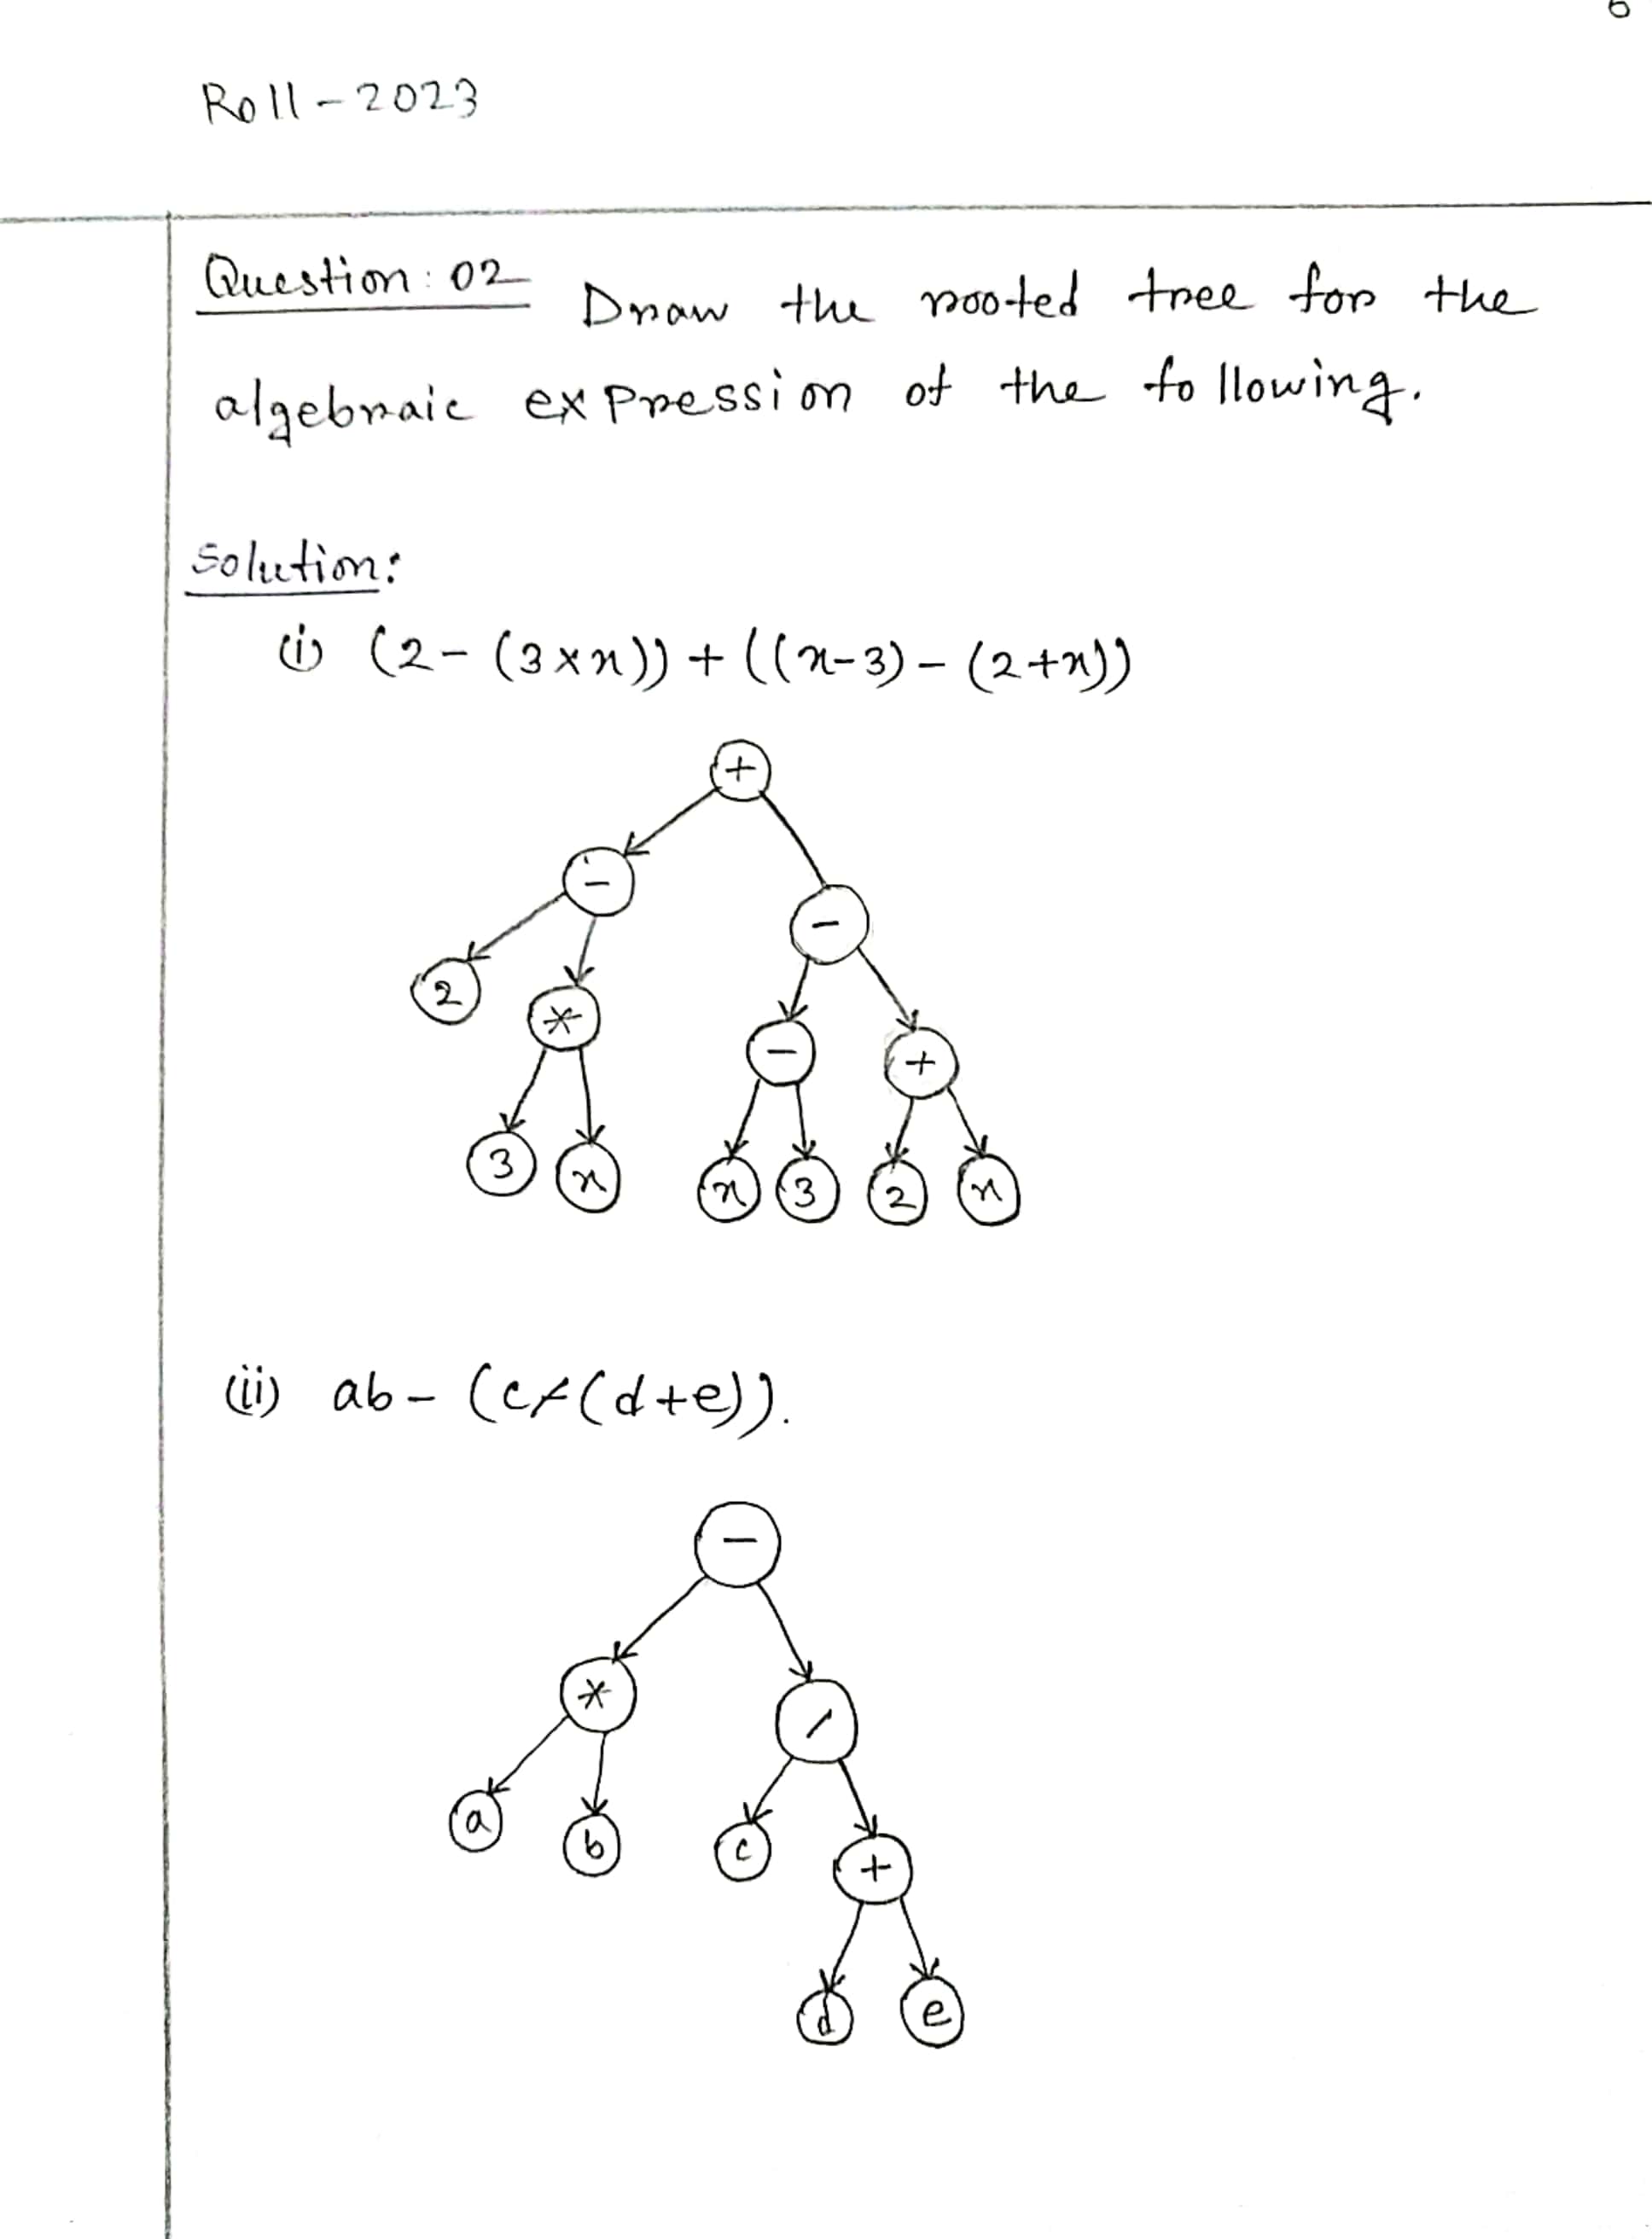 6
Roll-2023
Question: 02 Draw the rooted tree for the
algebraic expression of the following.
Solution:
(i) (2-(3×x))+((x-3)-(2+x))
+
-
-
2
*
-
+
3 x x 3 2 x
(ii) ab-(c/(d+e)).
-
*
/
a
b
c
+
d e